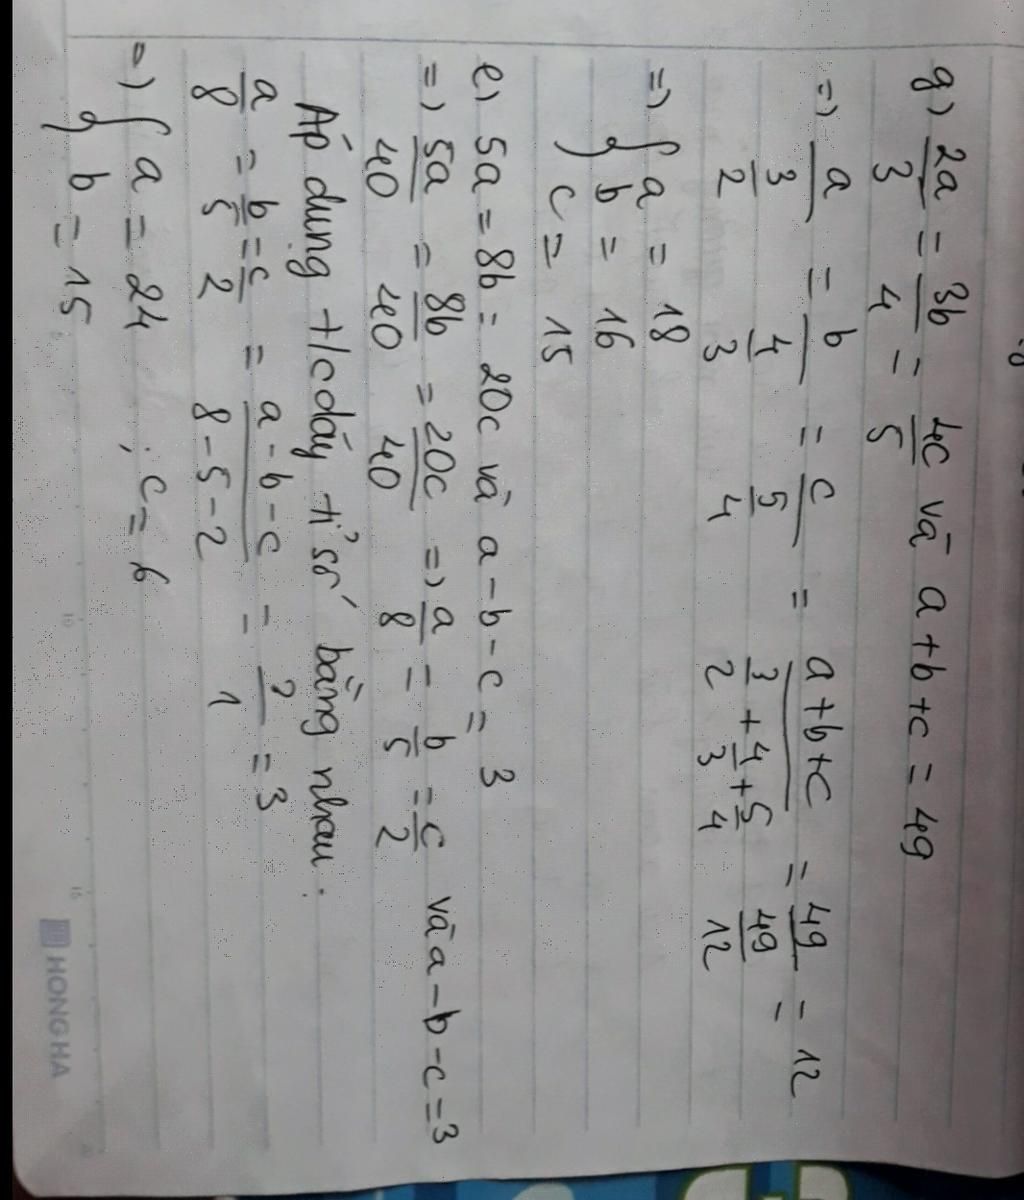 g) 2a/3 = 3b/4 = 4c/5 và a+b+c = 49
=) a/(3/2) = b/(4/3) = c/(5/4) = (a+b+c)/(3/2 + 4/3 + 5/4) = 49/(49/12) = 12
=) { a = 18
b = 16
c = 15
e) 5a = 8b = 20c và a-b-c = 3
=) 5a/40 = 8b/40 = 20c/40 =) a/8 = b/5 = c/2 và a-b-c=3
Áp dụng t/c dãy tỉ số bằng nhau:
a/8 = b/5 = c/2 = (a-b-c)/(8-5-2) = 3/1 = 3
=) { a = 24 ; c = 6
b = 15
HONG HA